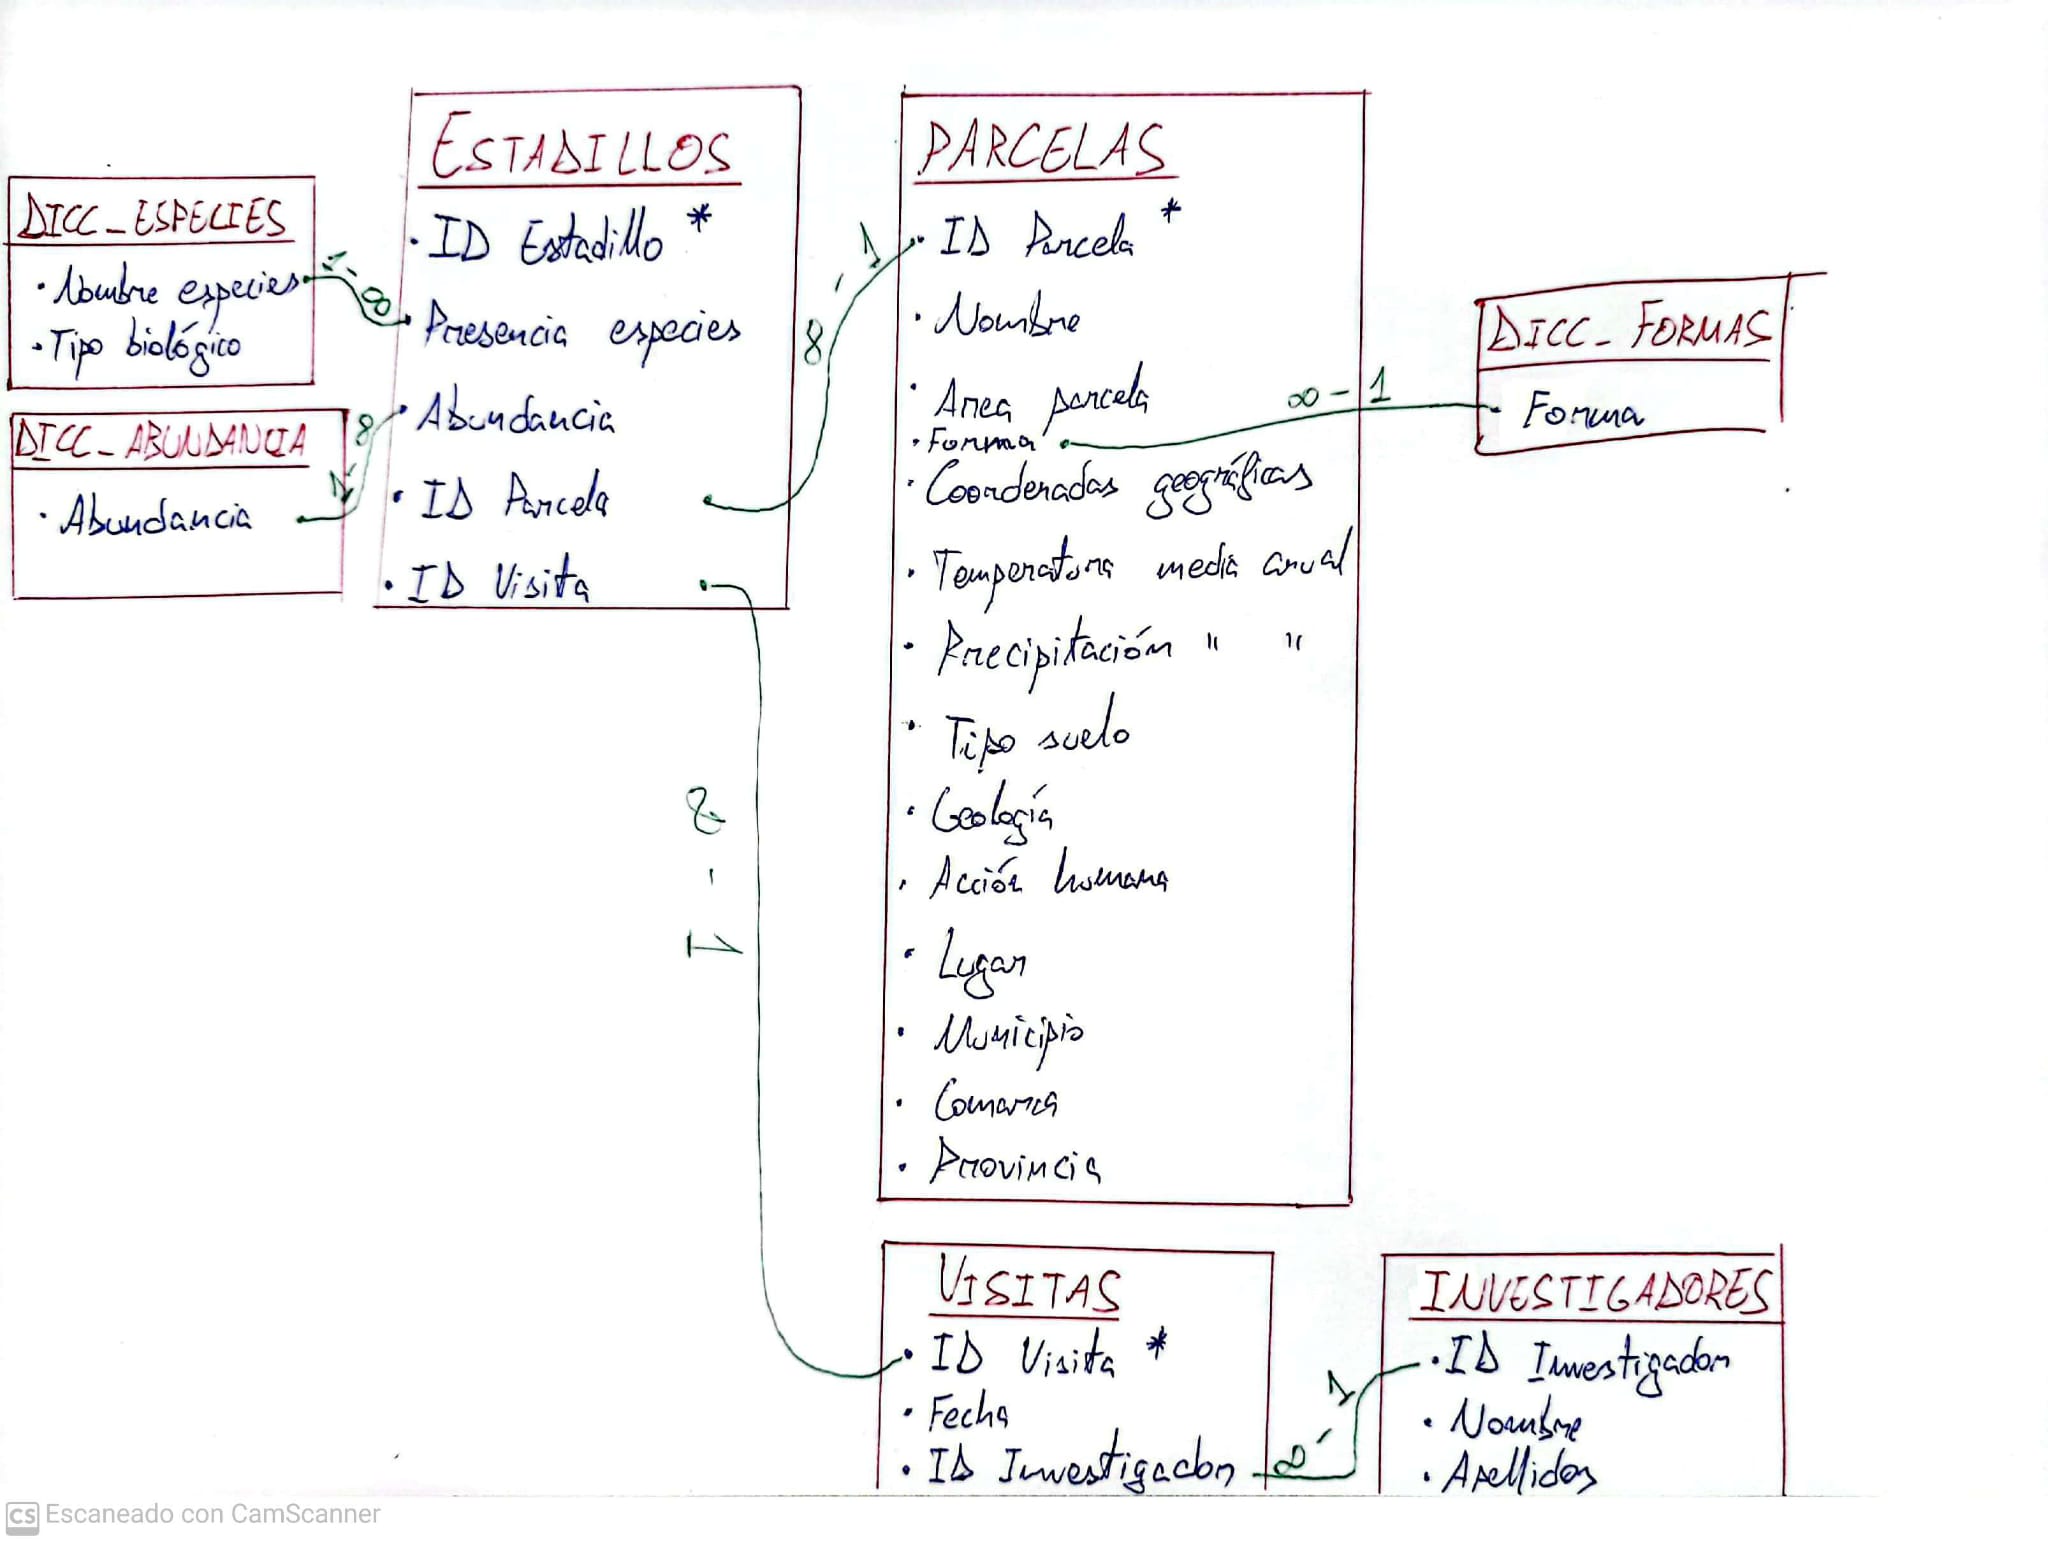 DICC_ESPECIES
· Nombre especies
· Tipo biológico
1-∞
DICC_ABUNDANCIA
· Abundancia
1-∞
ESTADILLOS
· ID Estadillo *
· Presencia especies
· Abundancia
· ID Parcela
· ID Visita
∞-1
∞-1
PARCELAS
· ID Parcela *
· Nombre
· Area parcela
· Forma
· Coordenadas geográficas
· Temperatura media anual
· Precipitación " "
· Tipo suelo
· Geología
· Acción humana
· Lugar
· Municipio
· Comarca
· Provincia
∞-1
DICC_FORMAS
· Forma
VISITAS
· ID Visita *
· Fecha
· ID Investigador
∞-1
INVESTIGADORES
· ID Investigador
· Nombre
· Apellidos
CS Escaneado con CamScanner